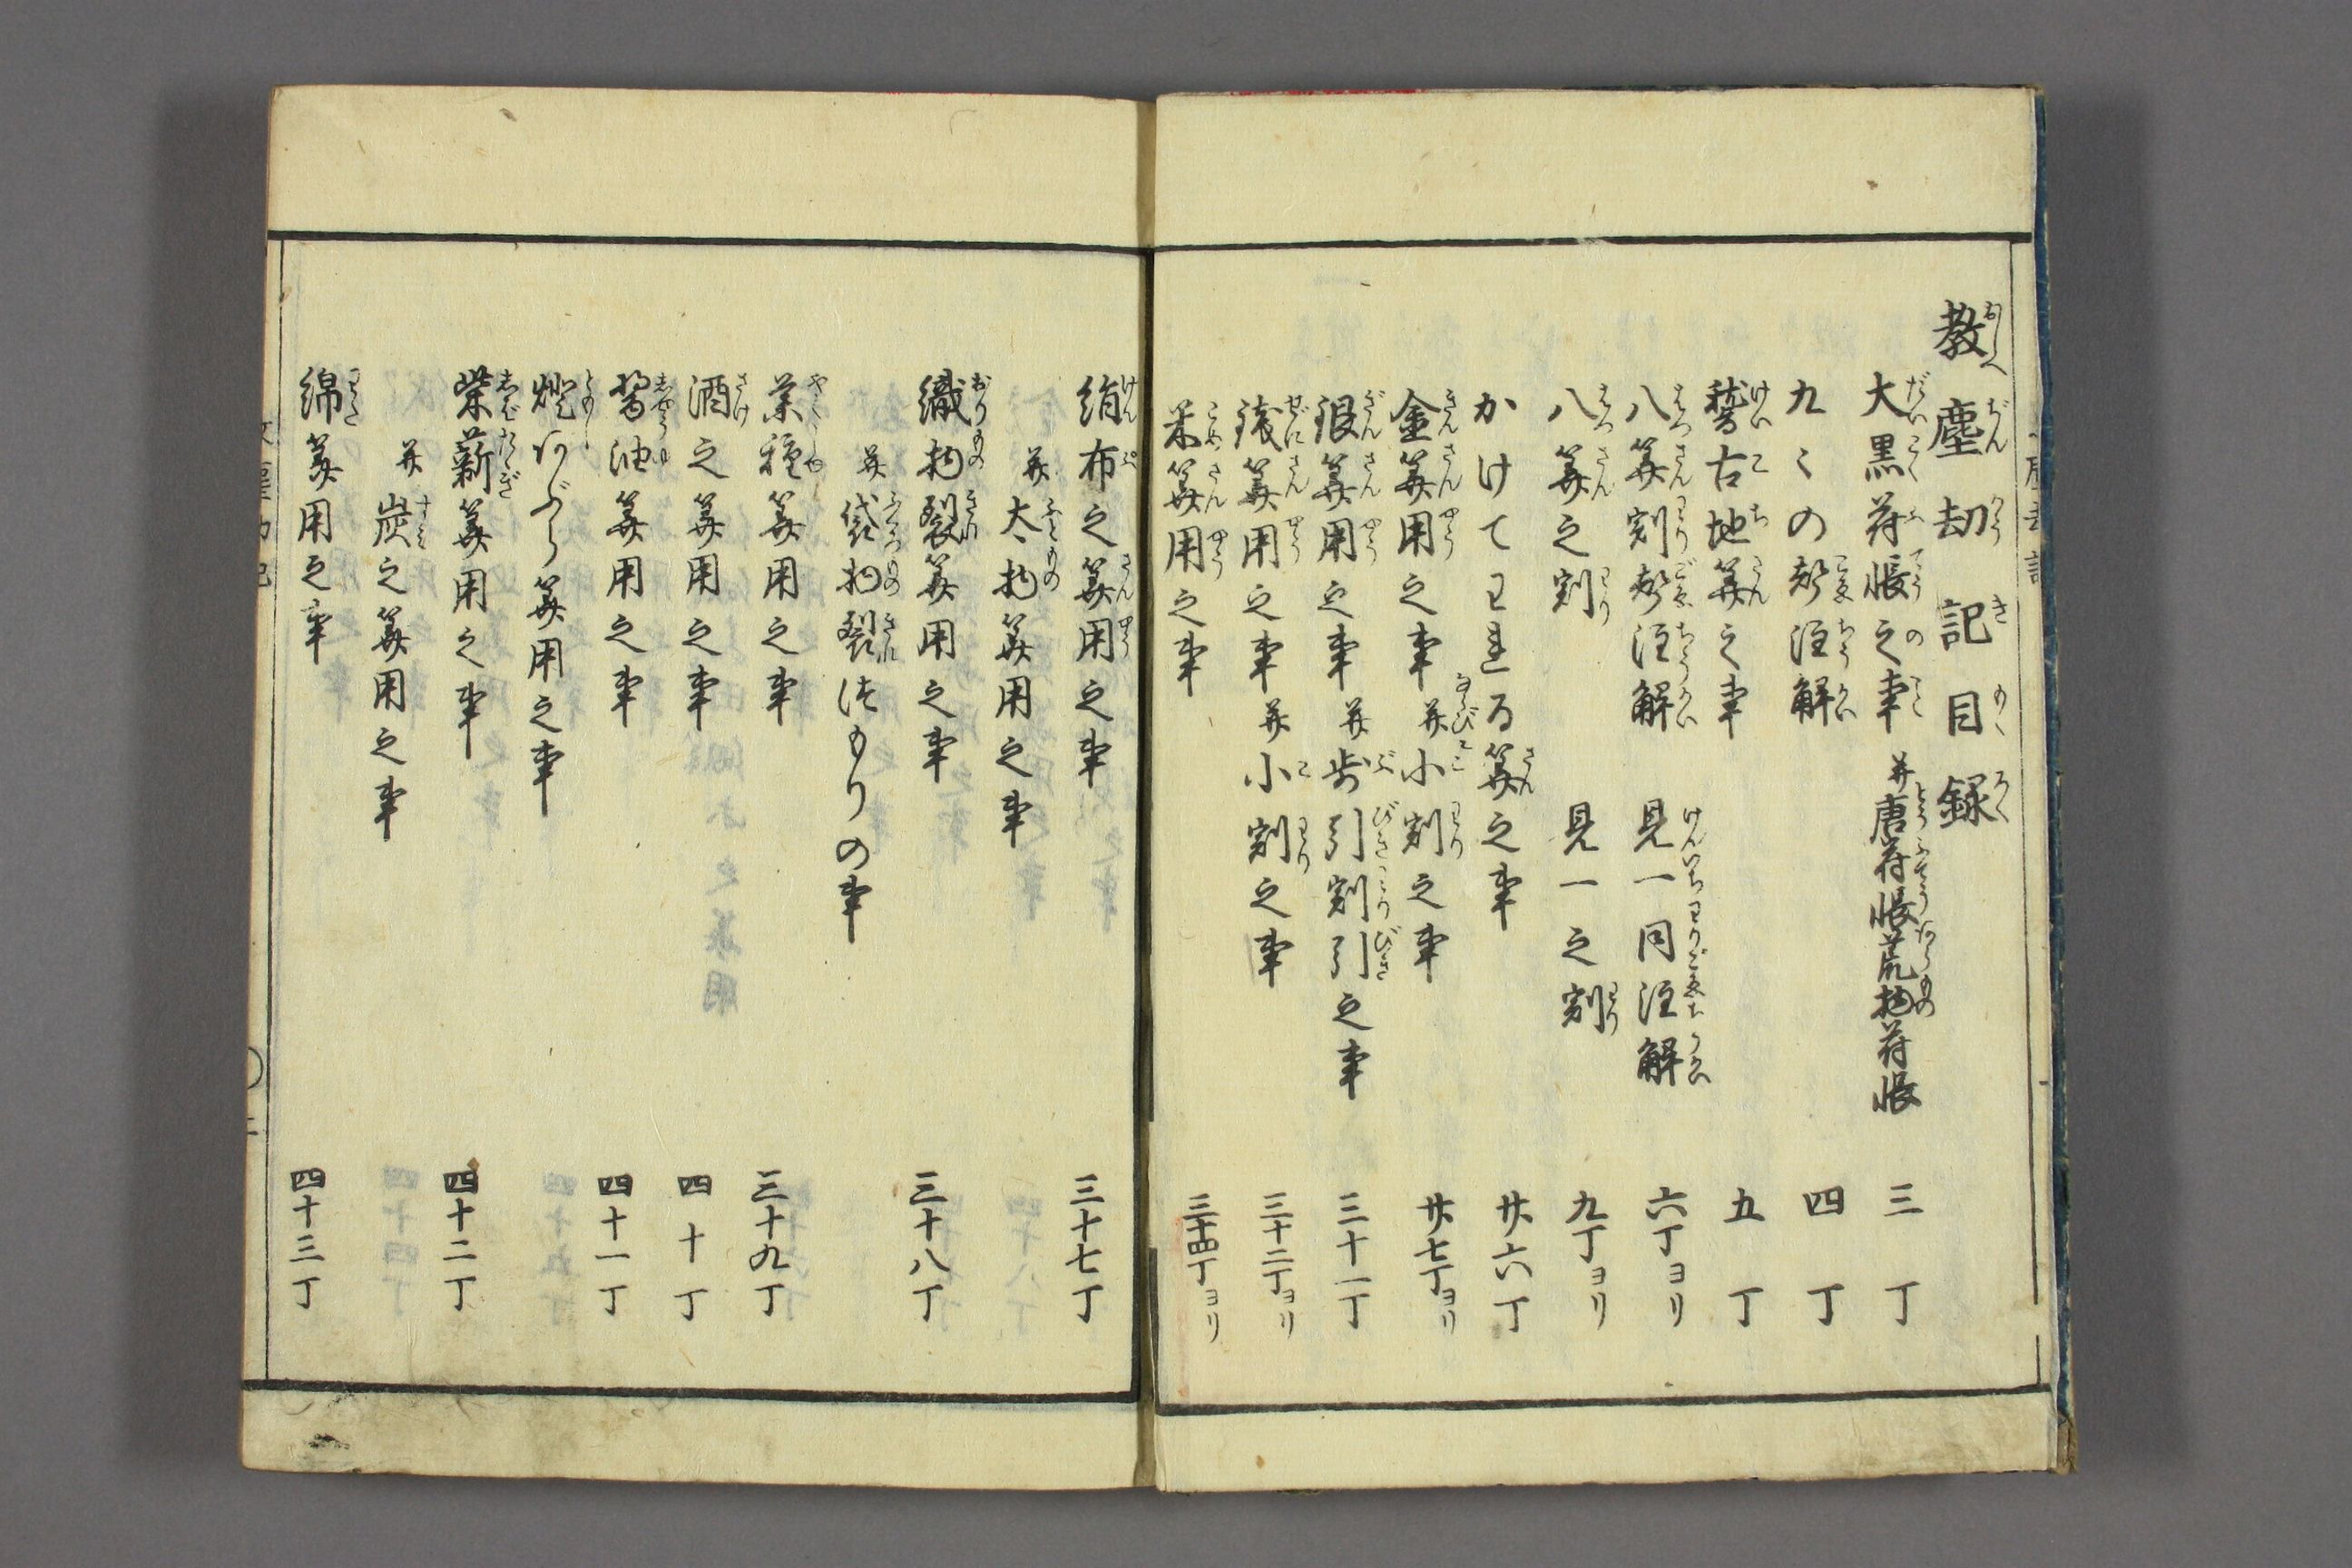 教塵劫記目録
大黒符帳之事 并唐符帳荒物符帳 三丁
九〻の声注解 四丁
稽古地算之事 五丁
八算割声注解 見一同注解 六丁ヨリ
八算之割 見一之割 九丁ヨリ
かけてわれる算之事 廿六丁
金算用之事 并小割之事 廿七丁ヨリ
銀算用之事 并歩引割引之事 三十一丁
銭算用之事 并小割之事 三十二丁ヨリ
米算用之事 三十四丁ヨリ
絹布之算用之事 三十七丁
并太物算用之事
織物裂算用之事 三十八丁
并袋物裂つもりの事
薬種算用之事 三十九丁
酒之算用之事 四十丁
醤油算用之事 四十一丁
燈あぶら算用之事
柴薪算用之事 四十二丁
并炭之算用之事
綿算用之事 四十三丁